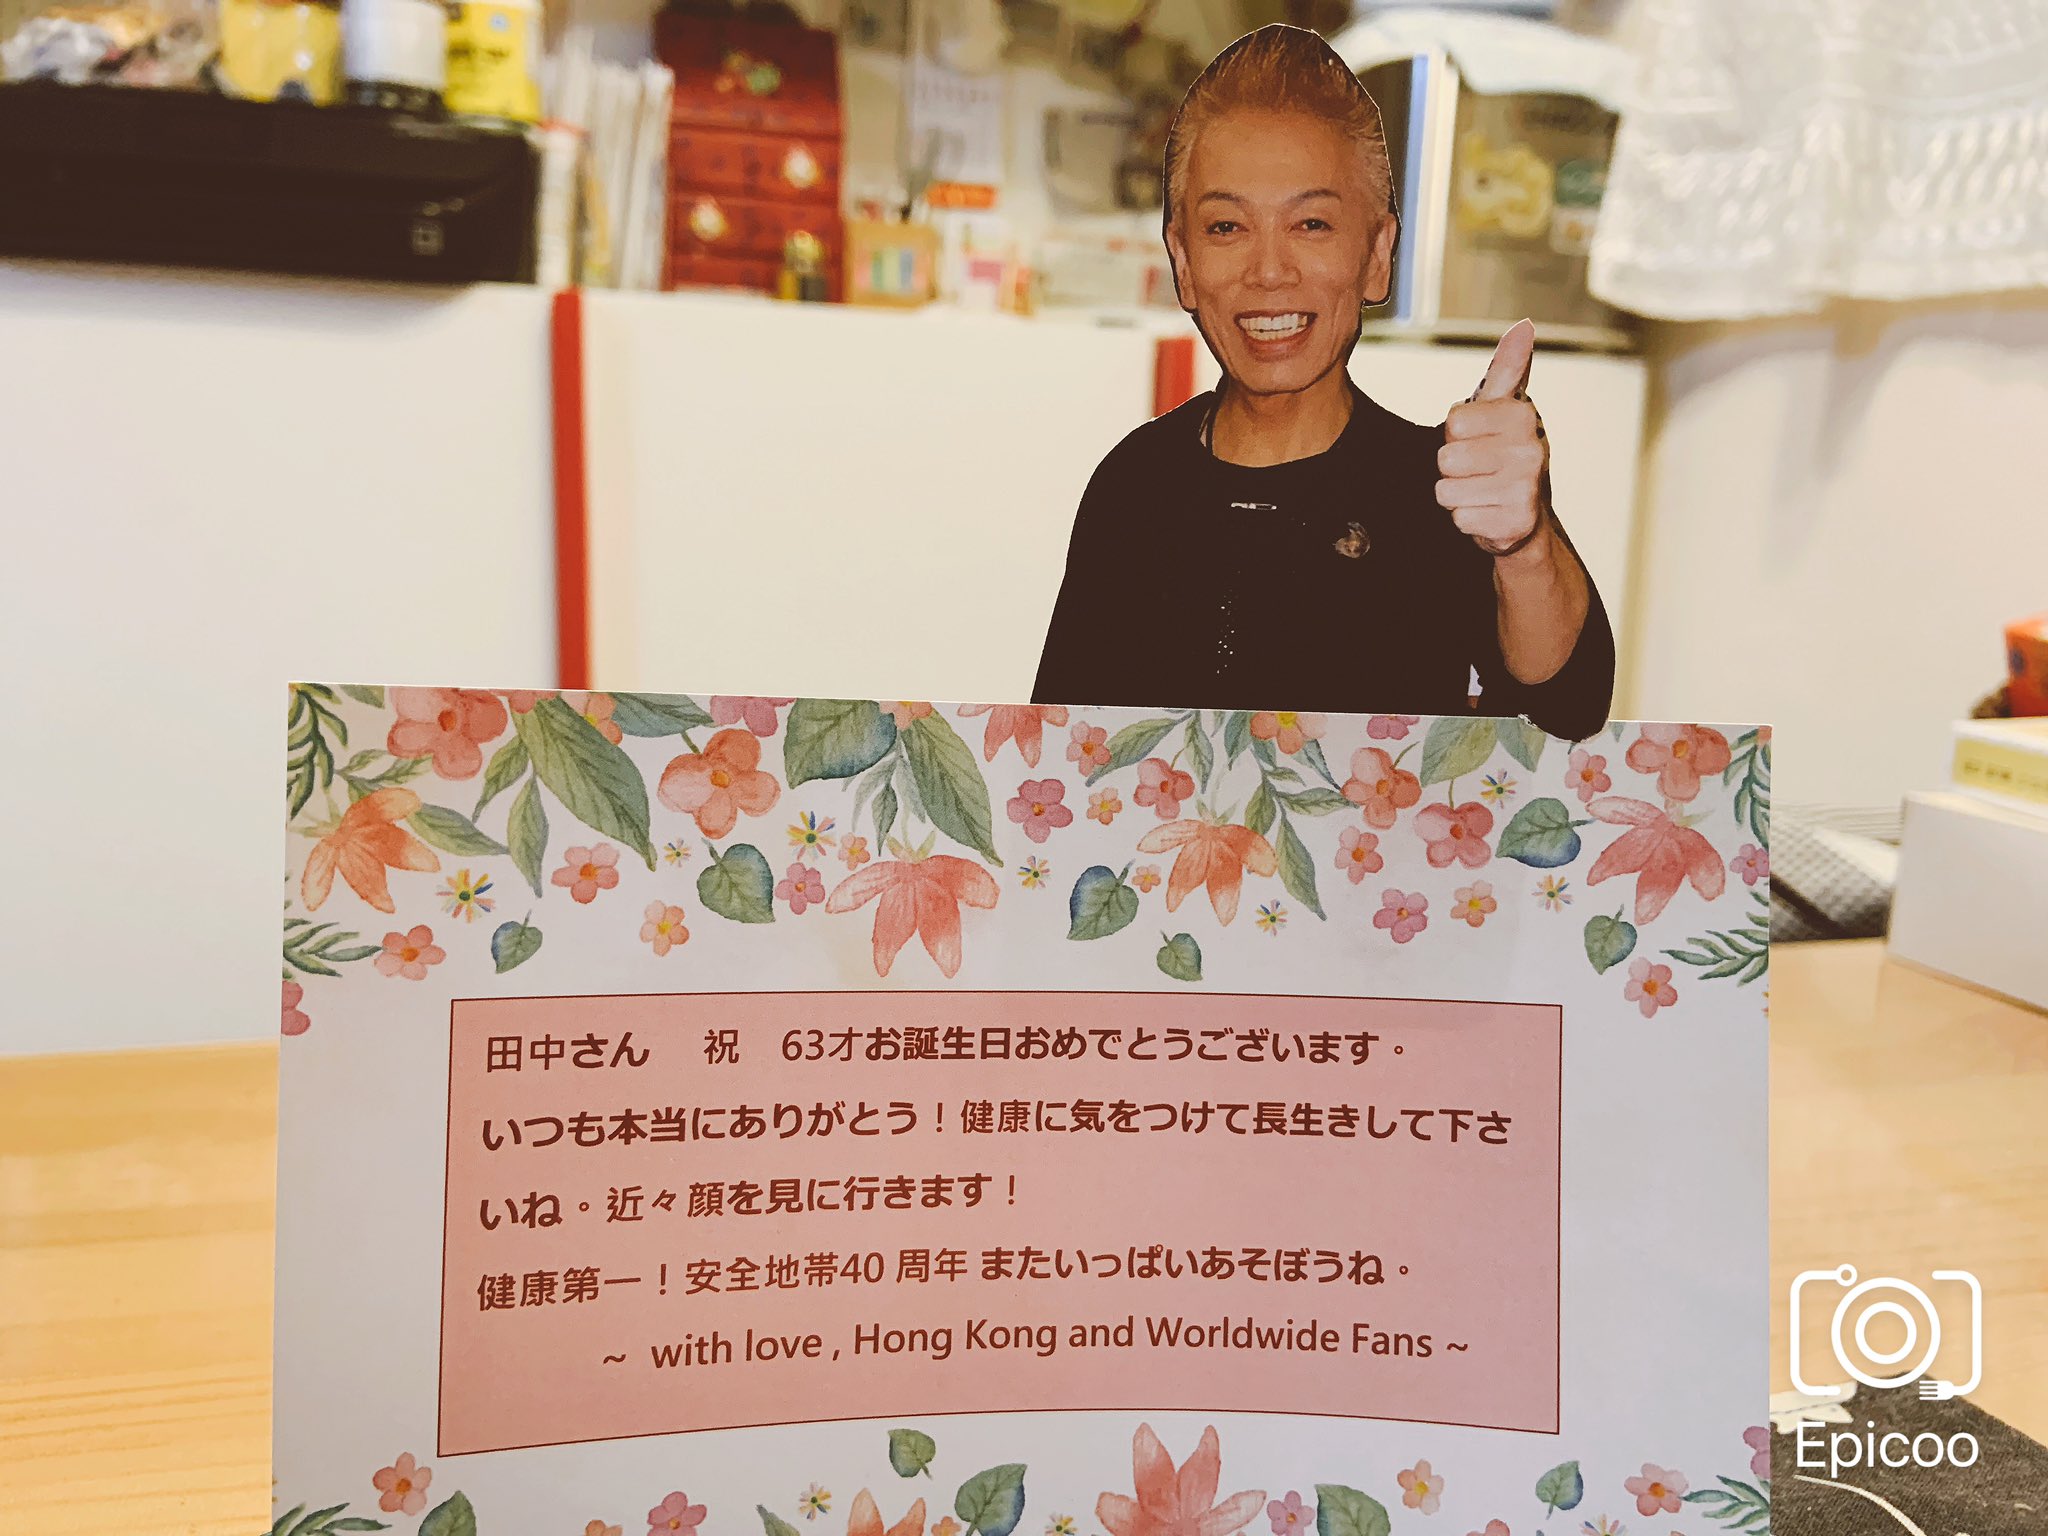 田中さん　祝　63才お誕生日おめでとうございます。
いつも本当にありがとう！健康に気をつけて長生きして下さ
いね。近々顔を見に行きます！
健康第一！安全地帯40 周年 またいっぱいあそぼうね。
~ with love , Hong Kong and Worldwide Fans ~
Epicoo